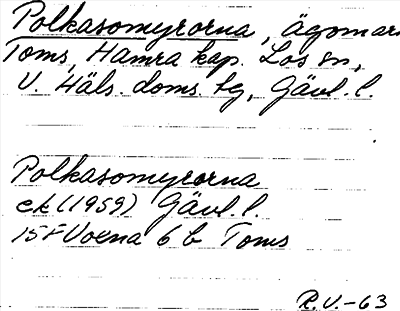 Polkasomyrorna, ägomar
Toms, Hamra kap. Los sn,
V. Häls. doms. sg, Gävl. l.
Polkasomyrorna
ek (1959) Gävl. l.
15F Voxna 6 b Toms
R.V.-63